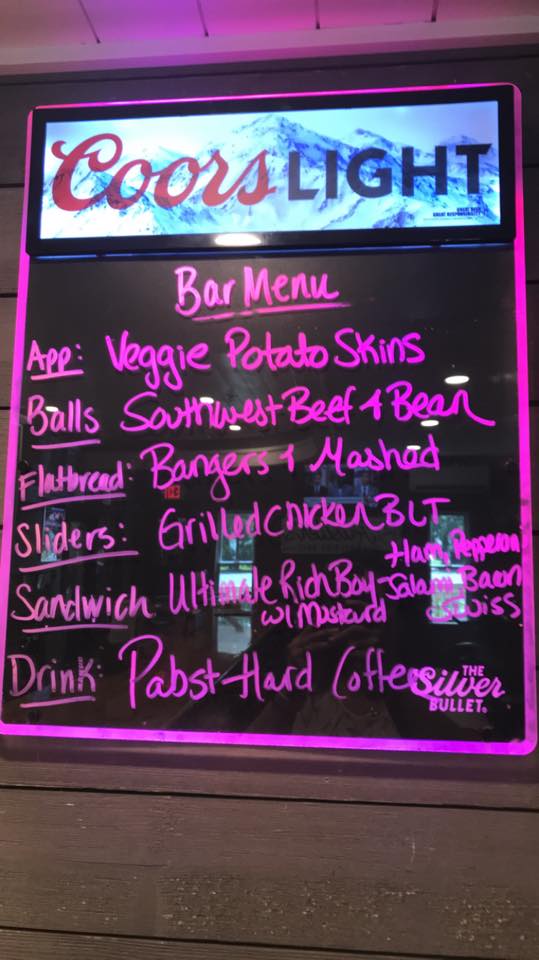 Coors LIGHT
GREAT BEER
GREAT RESPONSIBILITY
Bar Menu
App: Veggie Potato Skins
Balls Southwest Beef & Bean
Flatbread: Bangers & Mashed
Sliders: Grilled Chicken BLT
Sandwich Ultimate Rich Boy - Ham, Pepperoni
Salami, Bacon
w/ Mustard Swiss
Drink: Pabst Hard Coffee
THE
Silver
BULLET.